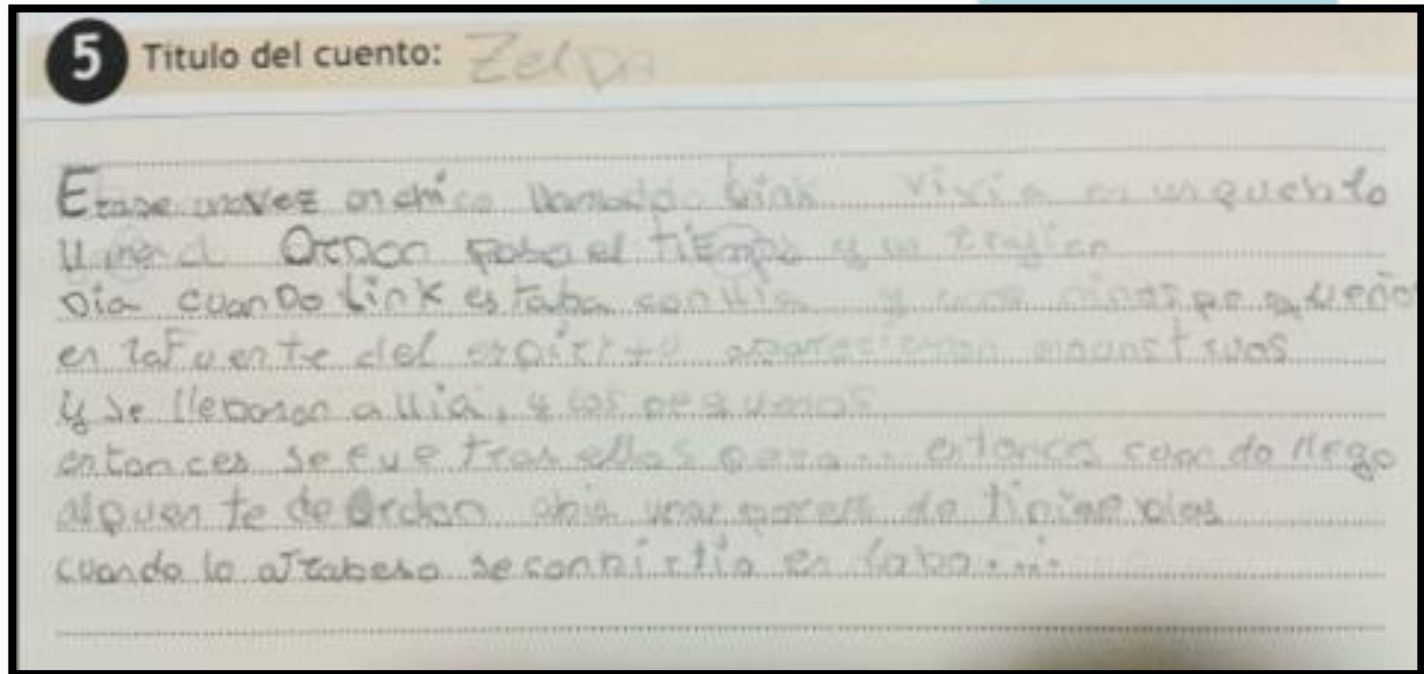 5 Titulo del cuento: Zelda
Erase unavez un chico llamado Link vivia en un pueblo
Ordon paso el tiempo y un
Dia cuanDo Link estaba con llia y unos pequeños
en la Fuente del espiritu monstruos
y se llebaron a llia, y los pequeños
entonces se fue tras ellos pero... entonces cuando llego
alpuente de Ordon abia una pared de
cuando lo atrabeso se conbirtio en lobo....